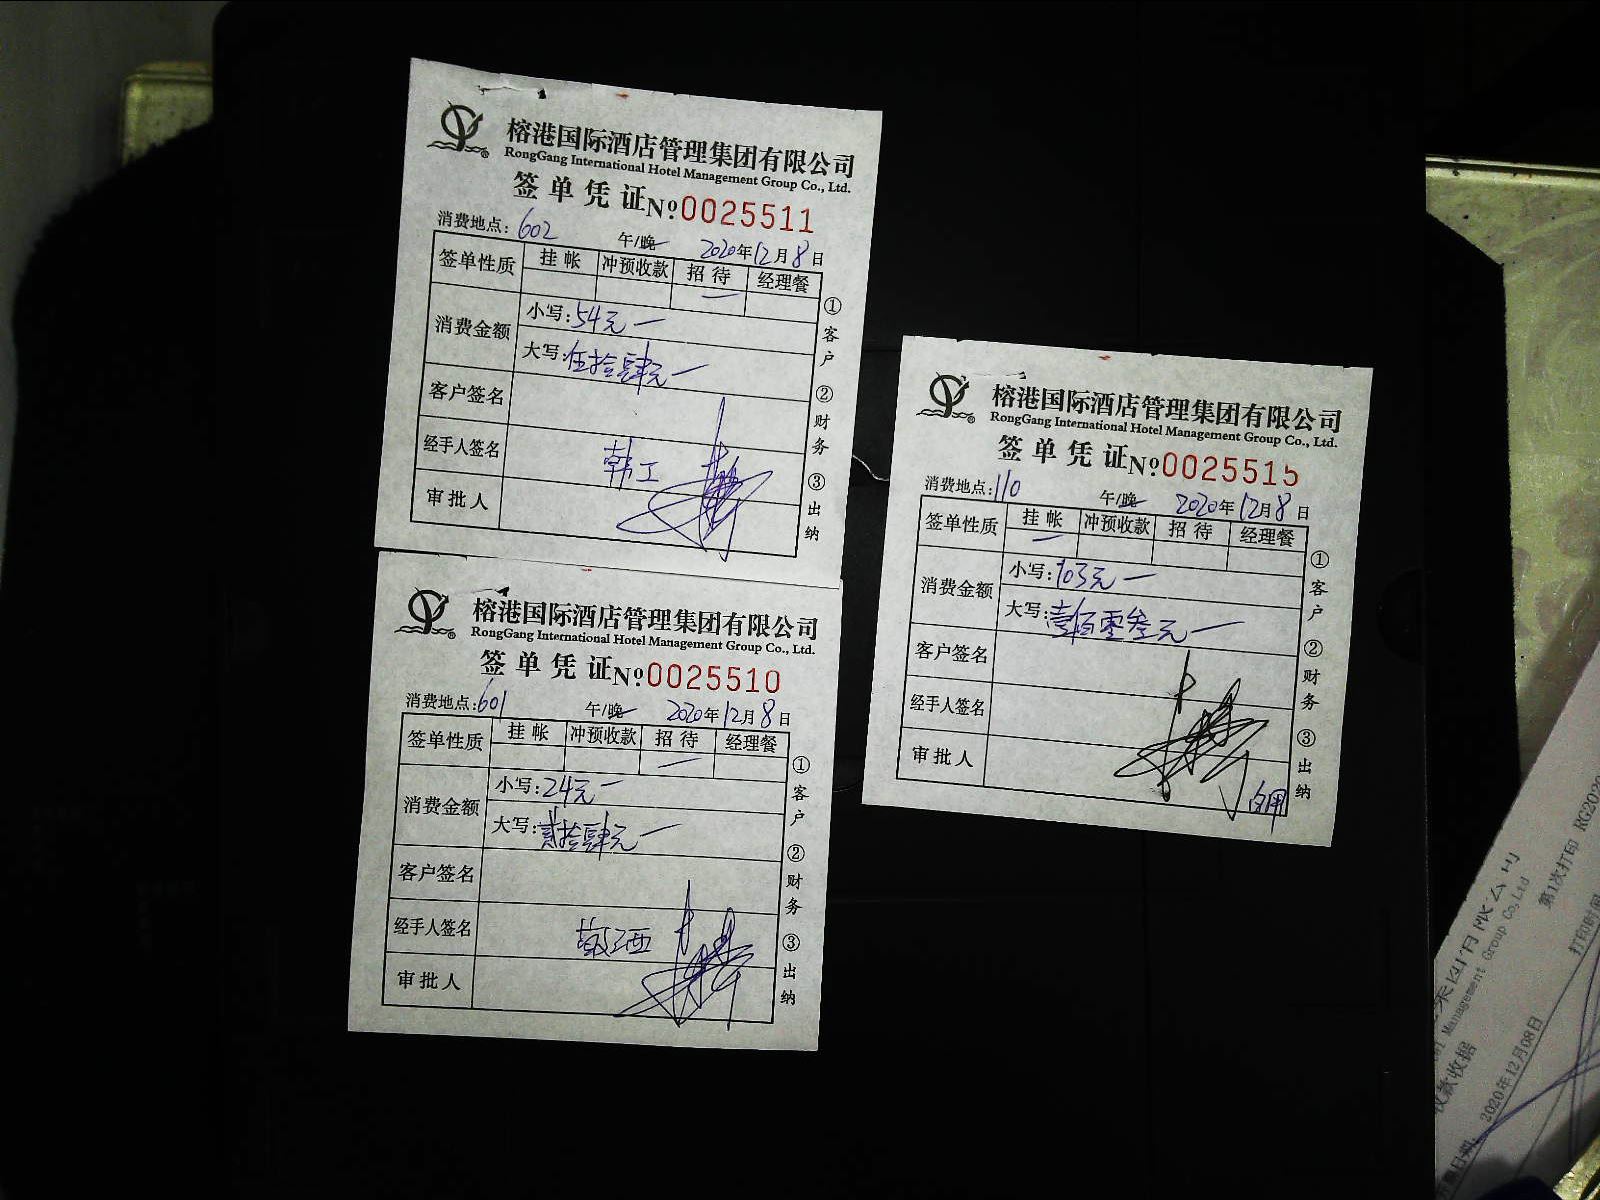 榕港国际酒店管理集团有限公司
RongGang International Hotel Management Group Co., Ltd.
签单凭证№0025511
消费地点: 602 午/晚 2020年12月8日
签单性质 挂帐 冲预收款 招待 经理餐
消费金额 小写: 54元
大写: 伍拾肆元
客户签名
经手人签名 韩工
审批人
①客户 ②财务 ③出纳
榕港国际酒店管理集团有限公司
RongGang International Hotel Management Group Co., Ltd.
签单凭证№0025510
消费地点: 601 午/晚 2020年12月8日
签单性质 挂帐 冲预收款 招待 经理餐
消费金额 小写: 24元
大写: 贰拾肆元
客户签名
经手人签名
审批人
①客户 ②财务 ③出纳
榕港国际酒店管理集团有限公司
RongGang International Hotel Management Group Co., Ltd.
签单凭证№0025515
消费地点: 110 午/晚 2020年12月8日
签单性质 挂帐 冲预收款 招待 经理餐
消费金额 小写: 103元
大写: 壹佰零叁元
客户签名
经手人签名
审批人
①客户 ②财务 ③出纳
Management Group Co., Ltd
第1次打印 RG202
打印时间
款收据
2020年12月08日